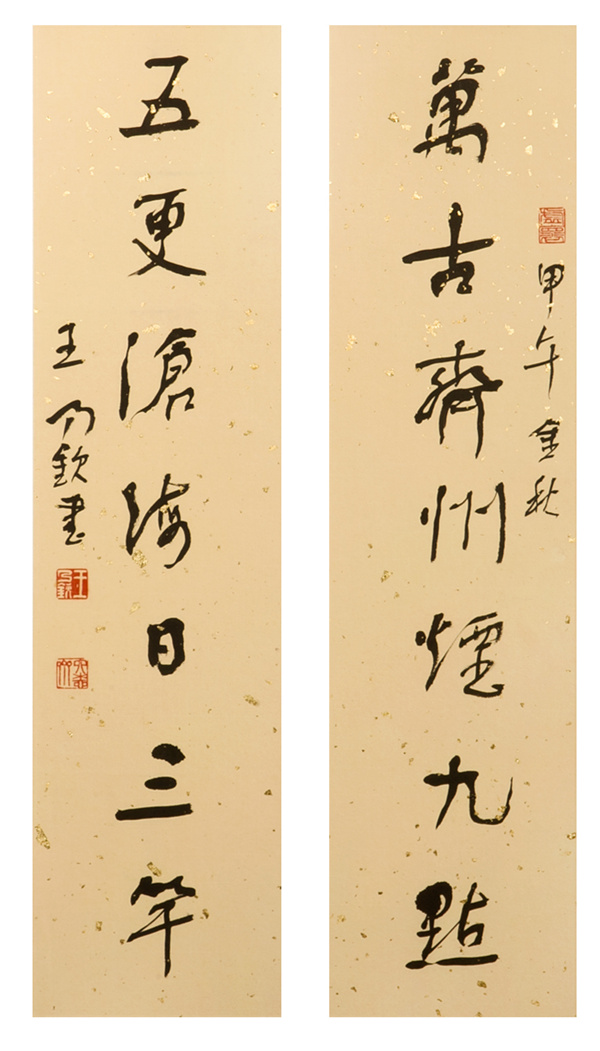 甲午金秋
萬古齊州煙九點
五更滄海日三竿
王乃欽書